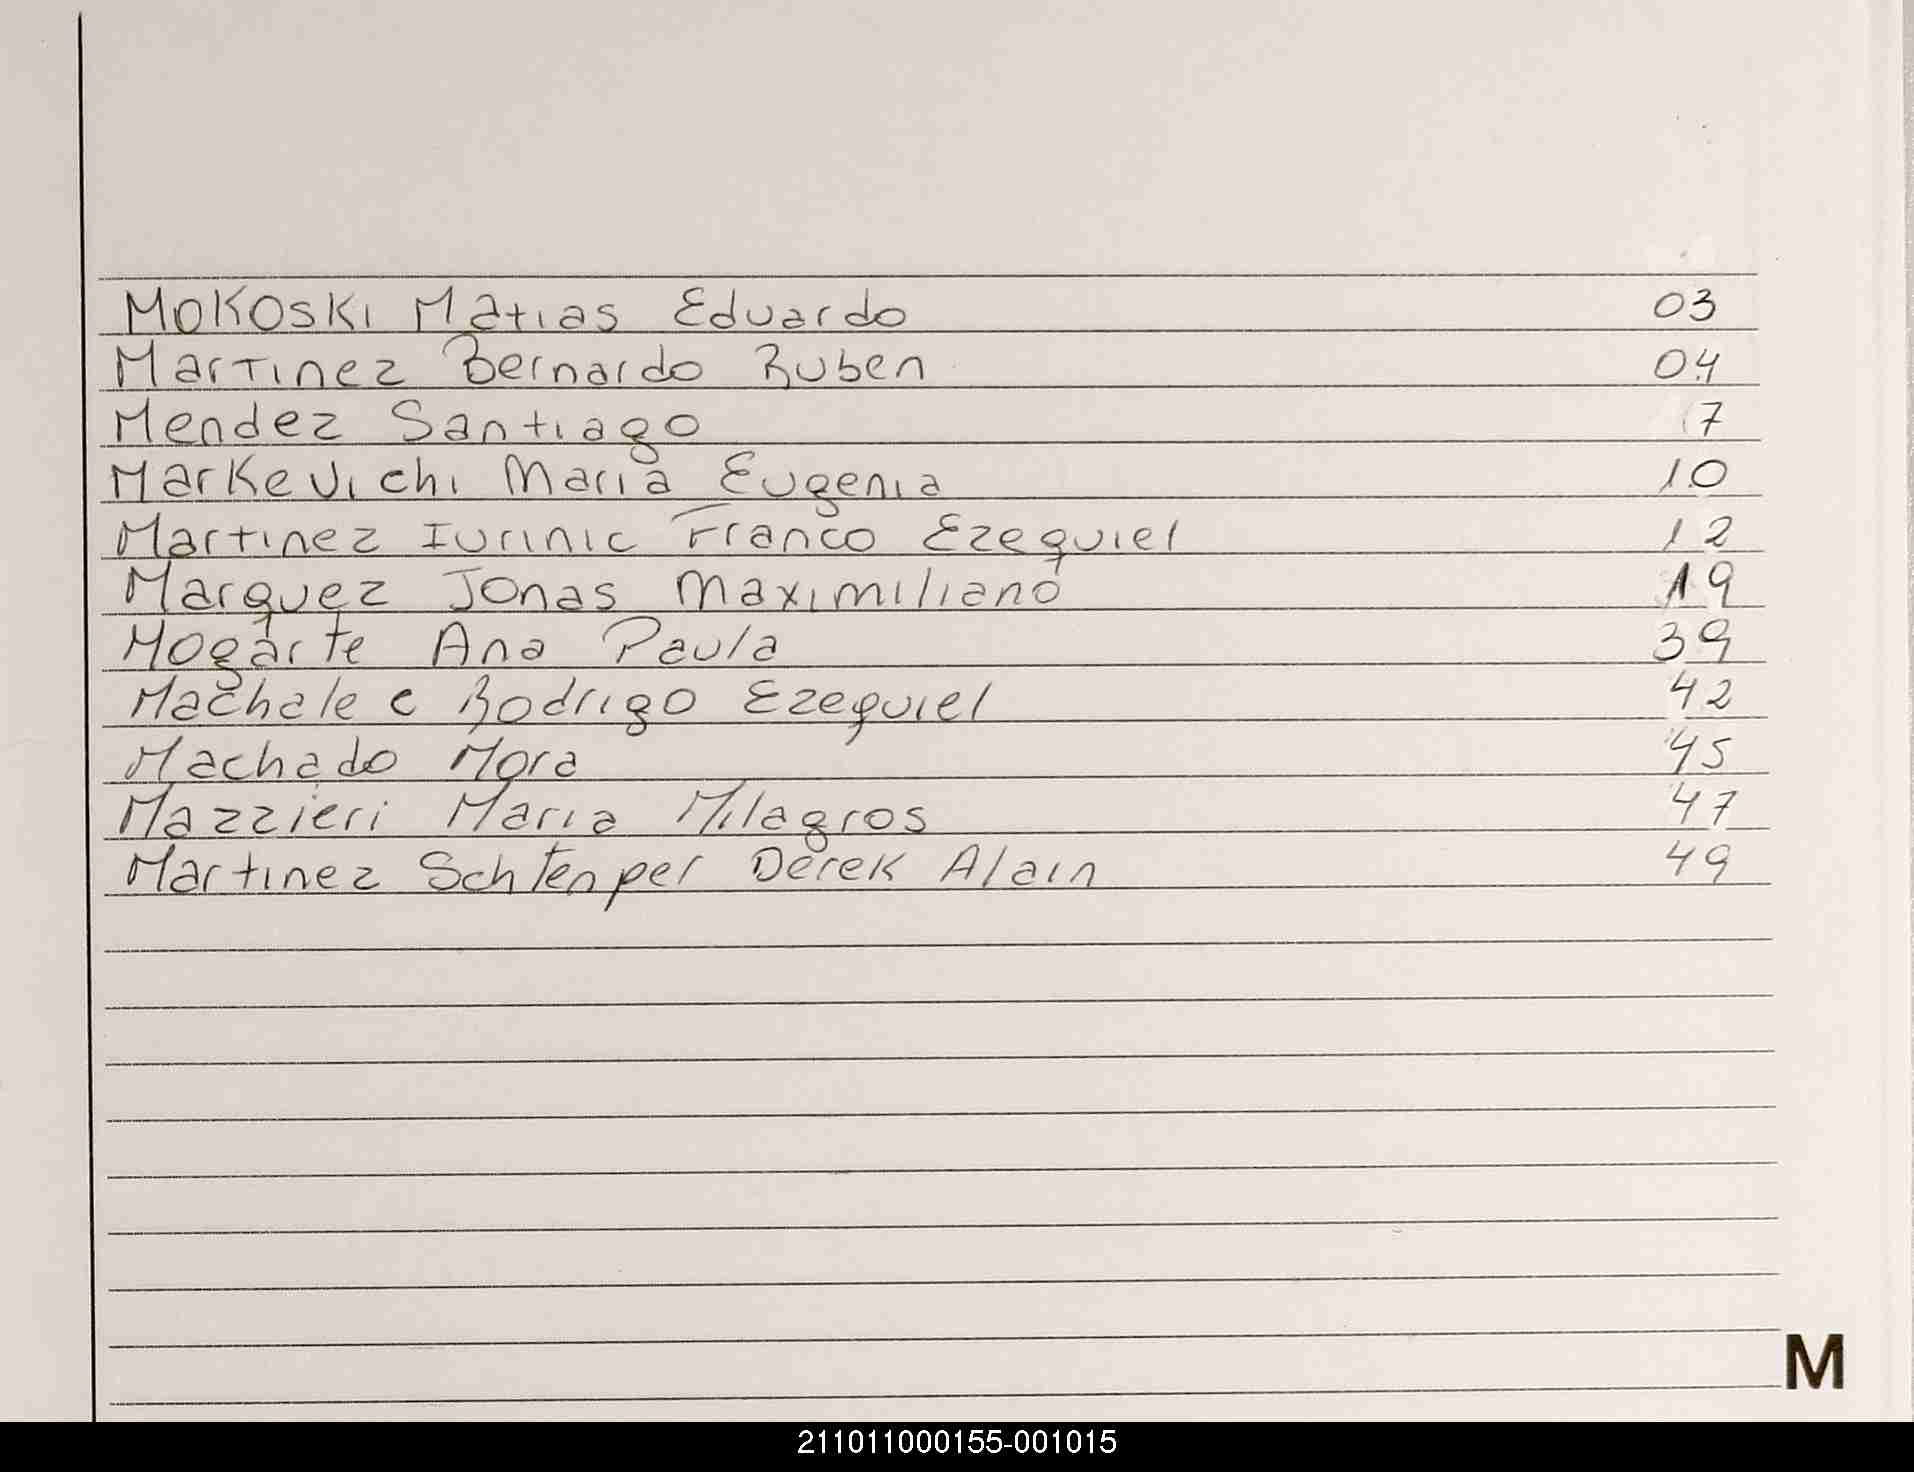 Mokoski Matias Eduardo 03
Martinez Bernardo Ruben 04
Mendez Santiago 7
Markevichi Maria Eugenia 10
Martinez Iurinic Franco Ezequiel 12
Marquez Jonas Maximiliano 19
Mogarte Ana Paula 39
Machale c Rodrigo Ezequiel 42
Machado Mora 45
Mazzieri Maria Milagros 47
Martinez Schtenper Derek Alain 49
M
211011000155-001015